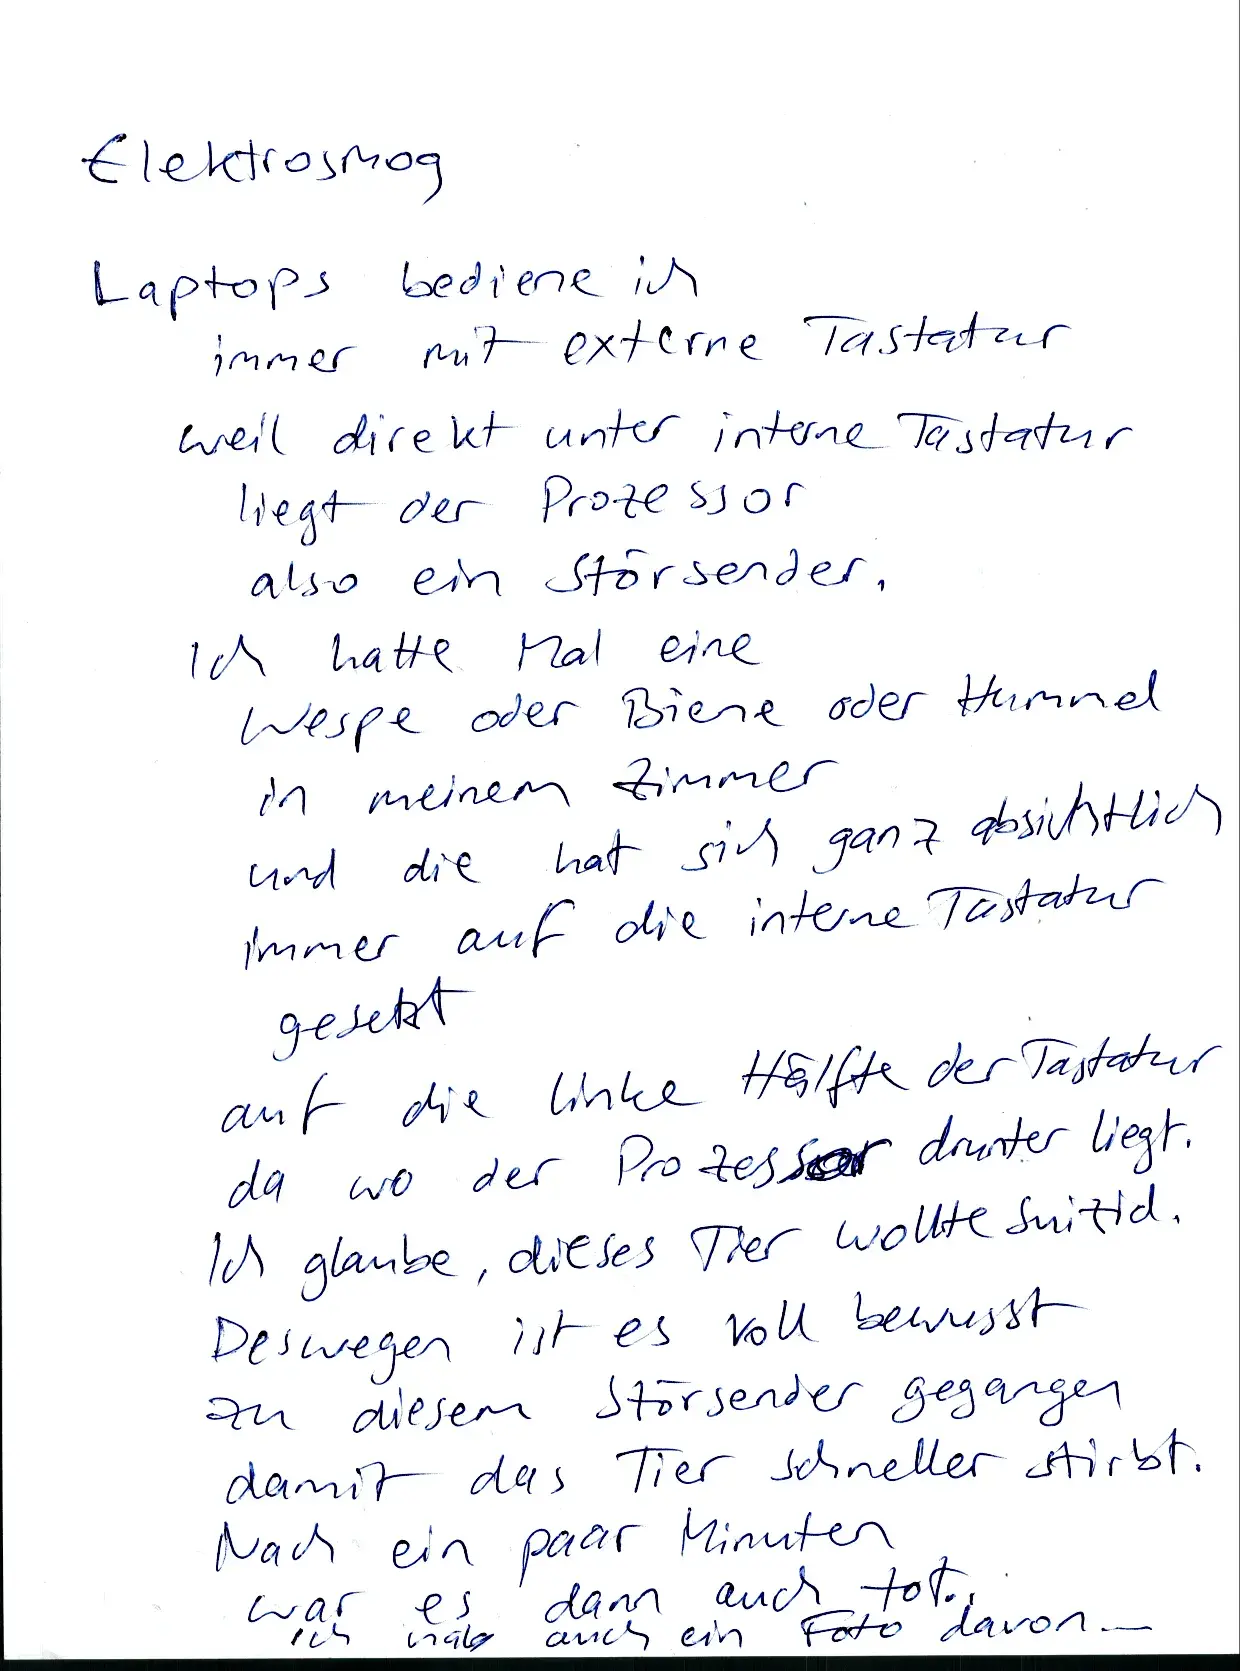 Elektrosmog
Laptops bediene ich
immer mit externe Tastatur
weil direkt unter interne Tastatur
liegt der Prozessor
also ein Störsender.
Ich hatte Mal eine
Wespe oder Biene oder Hummel
in meinem Zimmer
und die hat sich ganz absichtlich
immer auf die interne Tastatur
gesetzt
auf die linke Hälfte der Tastatur
da wo der Prozessor drunter liegt.
Ich glaube, dieses Tier wollte Suizid.
Deswegen ist es voll bewusst
zu diesem Störsender gegangen
damit das Tier schneller stirbt.
Nach ein paar Minuten
war es dann auch tot..
ich hab auch ein Foto davon...